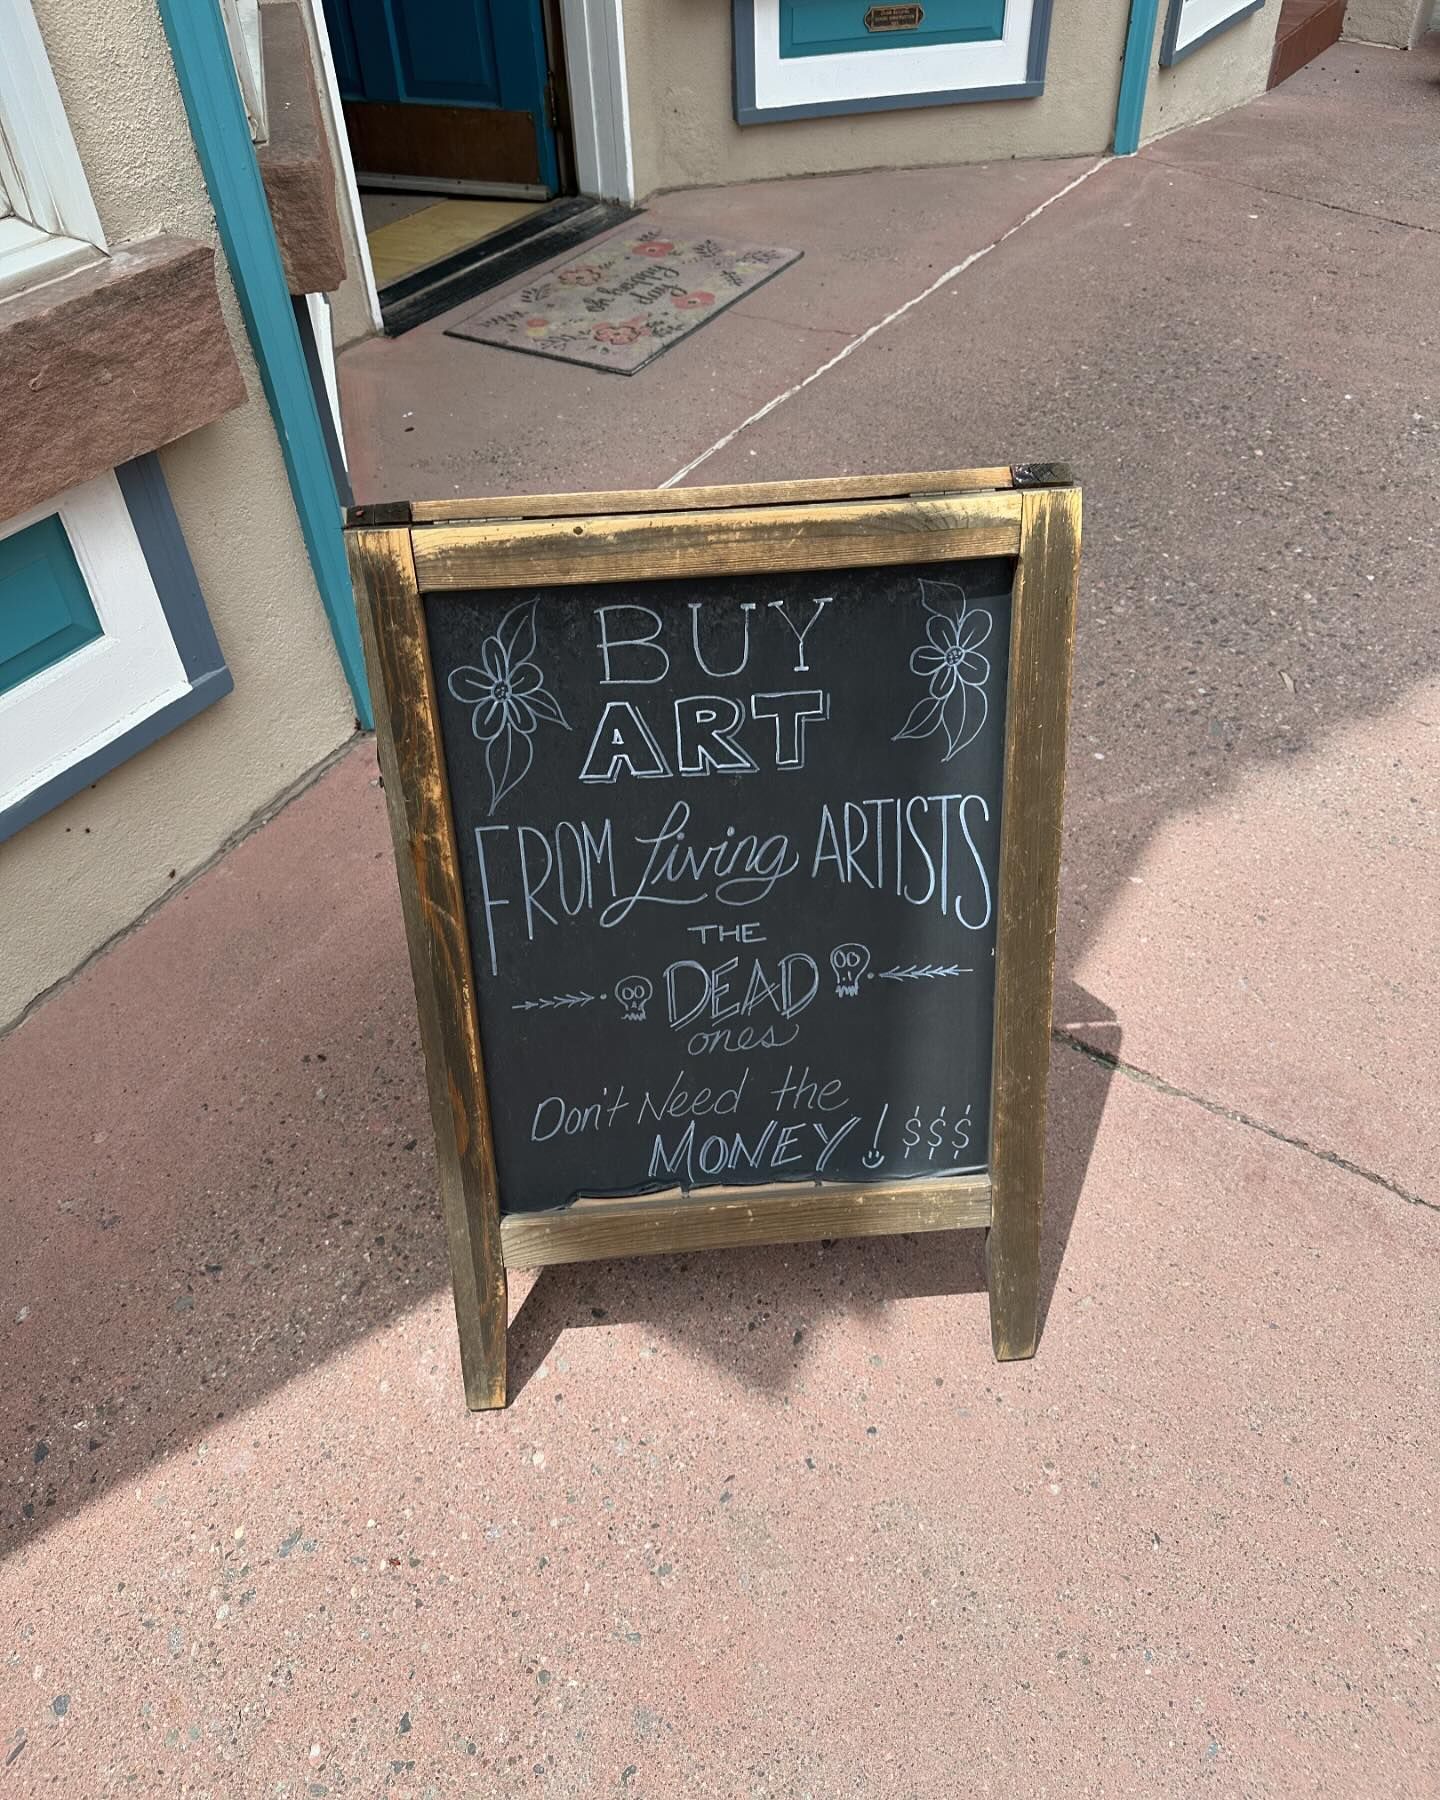 oh happy
day
BUY
ART
FROM Living ARTISTS
THE
DEAD
ones
Don't Need the
MONEY! $$$